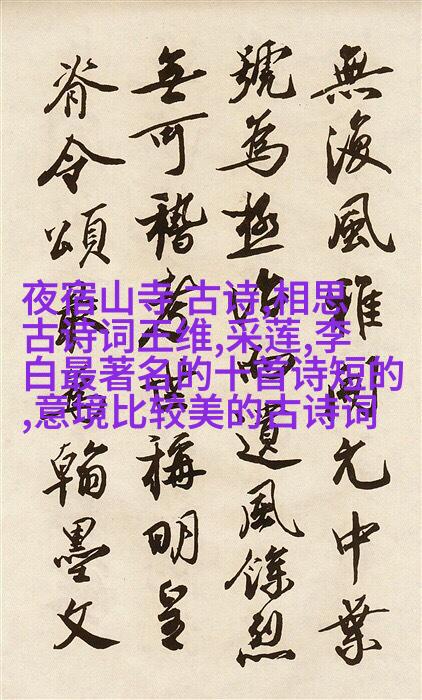 無風雅開元中葉
號為極治遺風餘烈
無可稽考稱明皇
脊令頌翰墨文
夜宿山寺 古诗,相思
古诗词王维,采莲,李
白最著名的十首诗短的
,意境比较美的古诗词